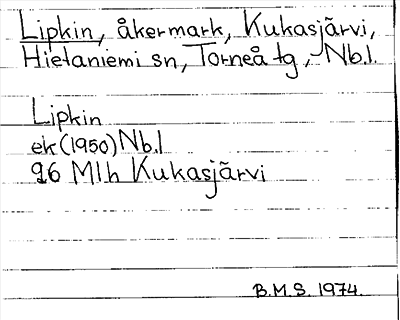 Lipkin, åkermark, Kukasjärvi,
Hietaniemi sn, Torneå tg, Nb.l.
Lipkin
ek (1950) Nb.l
26 Mlh Kukasjärvi
B.M.S. 1974.